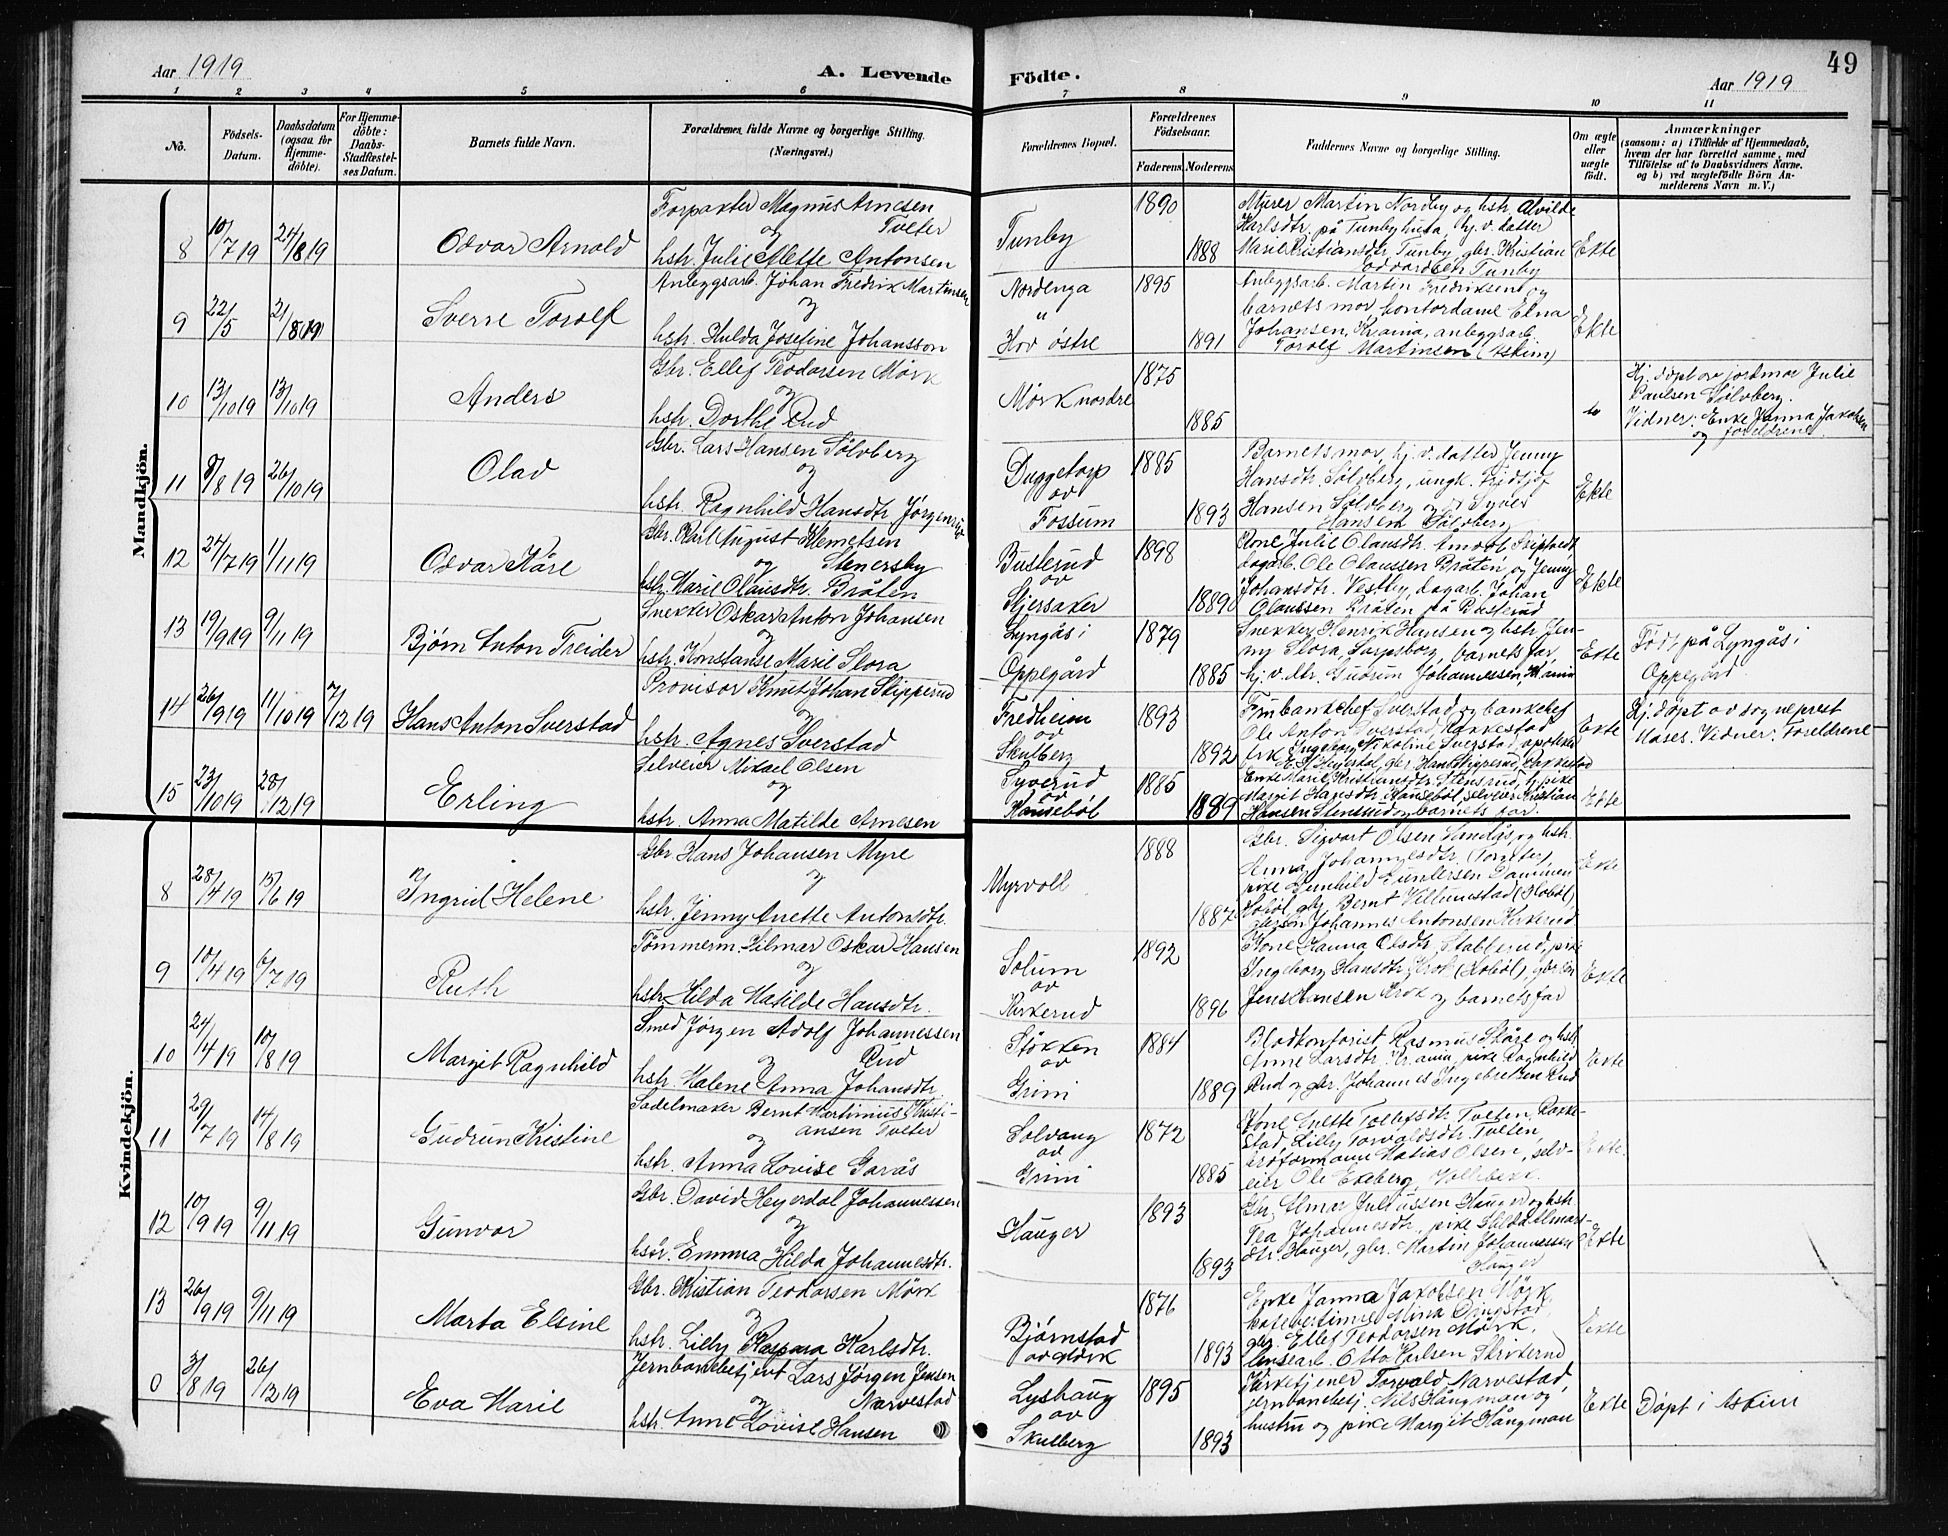 Aar 1919
A. Levende
Födte.
Aar 1919
49
1 2 3 4 5 6 7 8 9 10 11
No.
Födsels-
Datum.
Daabsdatum
(ogsaa for
Hjemme-
döbte).
For Hjemme-
döbte:
Daabs-
Stadfæstel-
ses Datum.
Barnets fulde Navn.
Forældrenes fulde Navne og borgerlige Stilling.
(Næringsvei.)
Forældrenes Bopæl.
Forældrenes
Födselsaar.
Faderens Moderens
Faddernes Navne og borgerlige Stilling.
Om ægte
eller
uægte
födt.
Anmærkninger
(saasom: a) i Tilfælde af Hjemmedaab,
hvem der har forrettet samme, med
Tilföielse af to Daabsvidners Navne.
og b) ved uægtefödte Börn An-
melderens Navn m. V.)
Mandkjön.
8 10/7 19 24/8 19 Odvar Arnold
Forpakter Magnus Arnesen
Tveter
og
hstr. Julie Mette Antonsen
Tunby
1890
1888
Murer Martin Nordby og hstr. Alvilde
Karlsdtr. på Tunbyhuta, hj. v. datter
Marie Kristiansdtr. Tunby, gbr. Kristian
Edvardsen Tunby
Ekte
9 22/5 21/8 19 Sverre Torolf
Anleggsarb. Johan Fredrik Martinsen
og
hstr. Hulda Josefine Johansson
Nordenga
"
Hov östre
1895
1891
Anleggsarb. Martin Fredriksen og
barnets mor, kontordame Edna
Johansen, Krania, anleggsarb.
Torolf Martinsen (Askim)
Ekte
10 13/10 19 13/10 19 Anders
Gbr. Ellef Teodorsen Mørk
og
hstr. Dorthe Rud
Mørk nordre
1875
1885
Hj. døpt av jordmor Julie
Paulsen Sølvberg.
Vidner: Enke Janna Jakobsen
og foreldrene.
11 8/8 19 26/10 19 Olav
Gbr. Lars Hansen Sølvberg
og
hstr. Ragnhild Hansdtr. Jörgensrud
Duggetorp
av
Fossum
1885
1893
Barnets mor, hj. v. datter Jenny
Hansdtr. Sølvberg, ungk. Fridtjof
Hansen Sølvberg og Syver
Hansen Sølvberg
Ekte
12 24/7 19 1/11 19 Odvar Kåre
Gbr. Karl August Klemetsen
og Stenersby
hstr. Marie Olausdtr. Bråten
Busterud
av
Stjersaker
1898
1889
Kone Julie Olausdtr.
dagarb. Ole Olaussen Bråten og Jenny
Johansdtr. Vestby, dagarb. Johan
Olaussen Bråten på Busterud
Ekte
13 19/9 19 9/11 19 Bjørn Anton Treider
Snekker Oskar Anton Johansen
og
hstr. Konstanse Marie Slora
Lyngås i
Oppegård
1879
1885
Snekker Henrik Hansen og hstr. Jen-
ny Slora, Sarpsborg, barnets far,
hj. v. dtr. Gudrun Johannessen, Krania
Ekte
Født på Lyngås i
Oppegård
14 26/9 19 11/10 19 7/12 19 Hans Anton Sverstad
Provisor Knut Johan Skipperud
og
hstr. Agnes Sverstad
Fredheim
av
Skulberg
1893
1892
Fru bankchef Sverstad, og bankchef
Ole Anton Sverstad, Rakkestad
frk. Ingeborg Nikoline Sverstad, apoteker
E. S. Heyerdal, gbr. Hans Skipperud, Rakkestad
Ekte
Hj. døpt av sogneprest
Moses. Vidner: Foreldrene
15 23/10 19 28/12 19 Erling
Selveier Mikael Olsen
og
hstr. Anna Matilde Arnesen
Syverud
av
Haudebøl
1885
1889
Enke Marie Kristiansdtr. Stensrud, hj. pike
Margit Hansdtr. Haudebøl, selveier Kristian
Hansen Stensrud og barnets far.
Ekte
Kvindekjön.
8 28/4 19 15/6 19 Yngrid Helene
Gbr. Hans Johansen Myre
og
hstr. Jenny Anette Antonsdtr.
Myrvoll
1888
1887
Gbr. Sigvart Olsen Sundås, og hstr.
Anna Johannesdtr. (Tomter),
pike Gunhild Gundersen Dammen
Hobøl, gbr. Bernt Villumstad (Hobøl),
Johannes Antonsen Kirkerud
Ekte
9 10/4 19 6/7 19 Ruth
Tømmerm. Hilmar Oskar Hansen
og
hstr. Hilda Matilde Hansdtr.
Solum
av
Kirkerud
1892
1896
Kone Hanna Olsdtr. Stablerud, pike
Ingeborg Hansdtr. Krok (Hobøl), gbr.
Jens Hansen Krok og barnets far
Ekte
10 24/4 19 10/8 19 Margit Ragnhild
Smed Jörgen Adolf Johannessen
og Rud
hstr. Malene Anna Johansdtr.
Støkken
av
Grini
1884
1889
Rasmus Skåre og hstr.
Anne Larsdtr. Krania, pike Ragnhild
Rud og gbr. Johannes Ingebretsen Rud
Ekte
11 29/7 19 14/8 19 Gudrun Kristine
Sadelmaker Bernt Martinius Kristi-
ansen Tveter
og
hstr. Anna Lovise Garås
Solvang
av
Grini
1872
1885
Kone Anette Tollefsdtr. Tveten, Rakke-
stad, Lilly Torvaldsdtr. Tveten,
Matias Olsen, selv-
eier Ole Ekeberg,
Ekte
12 10/9 19 9/11 19 Gunvor
Gbr. David Heyerdal Johannessen
og
hstr. Emma Hilda Johannesdtr.
Hauger
1893
1893
Gbr. Elmar Juliussen Hauger og hstr.
Tea Johannesdtr., pike Hilda Elmars-
dtr. Hauger, gbr. Martin Johannessen
Hauger
Ekte
13 26/9 19 9/11 19 Marta Elsine
Gbr. Kristian Teodorsen Mørk
og
hstr. Lilly Kaspara Karlsdtr.
Bjørnstad
av Mørk
1876
1893
Enke Janna Jakobsen Mørk,
Mina Dingstad,
gbr. Ellef Teodorsen Mørk,
Otto Karlsen Skrikerud
Ekte
0 3/8 19 26/12 19 Eva Marie
Jernbanebetjent Lars Jörgen Jensen
og Narvestad
hstr. Anne Lovise Hansen
Lyshaug
av
Skulberg
1895
1893
Kirketjener Torvald Narvestad,
jernbanebetj. Nils Hångman og
hustru og pike Margit Hångman
Ekte
Døpt i Askim